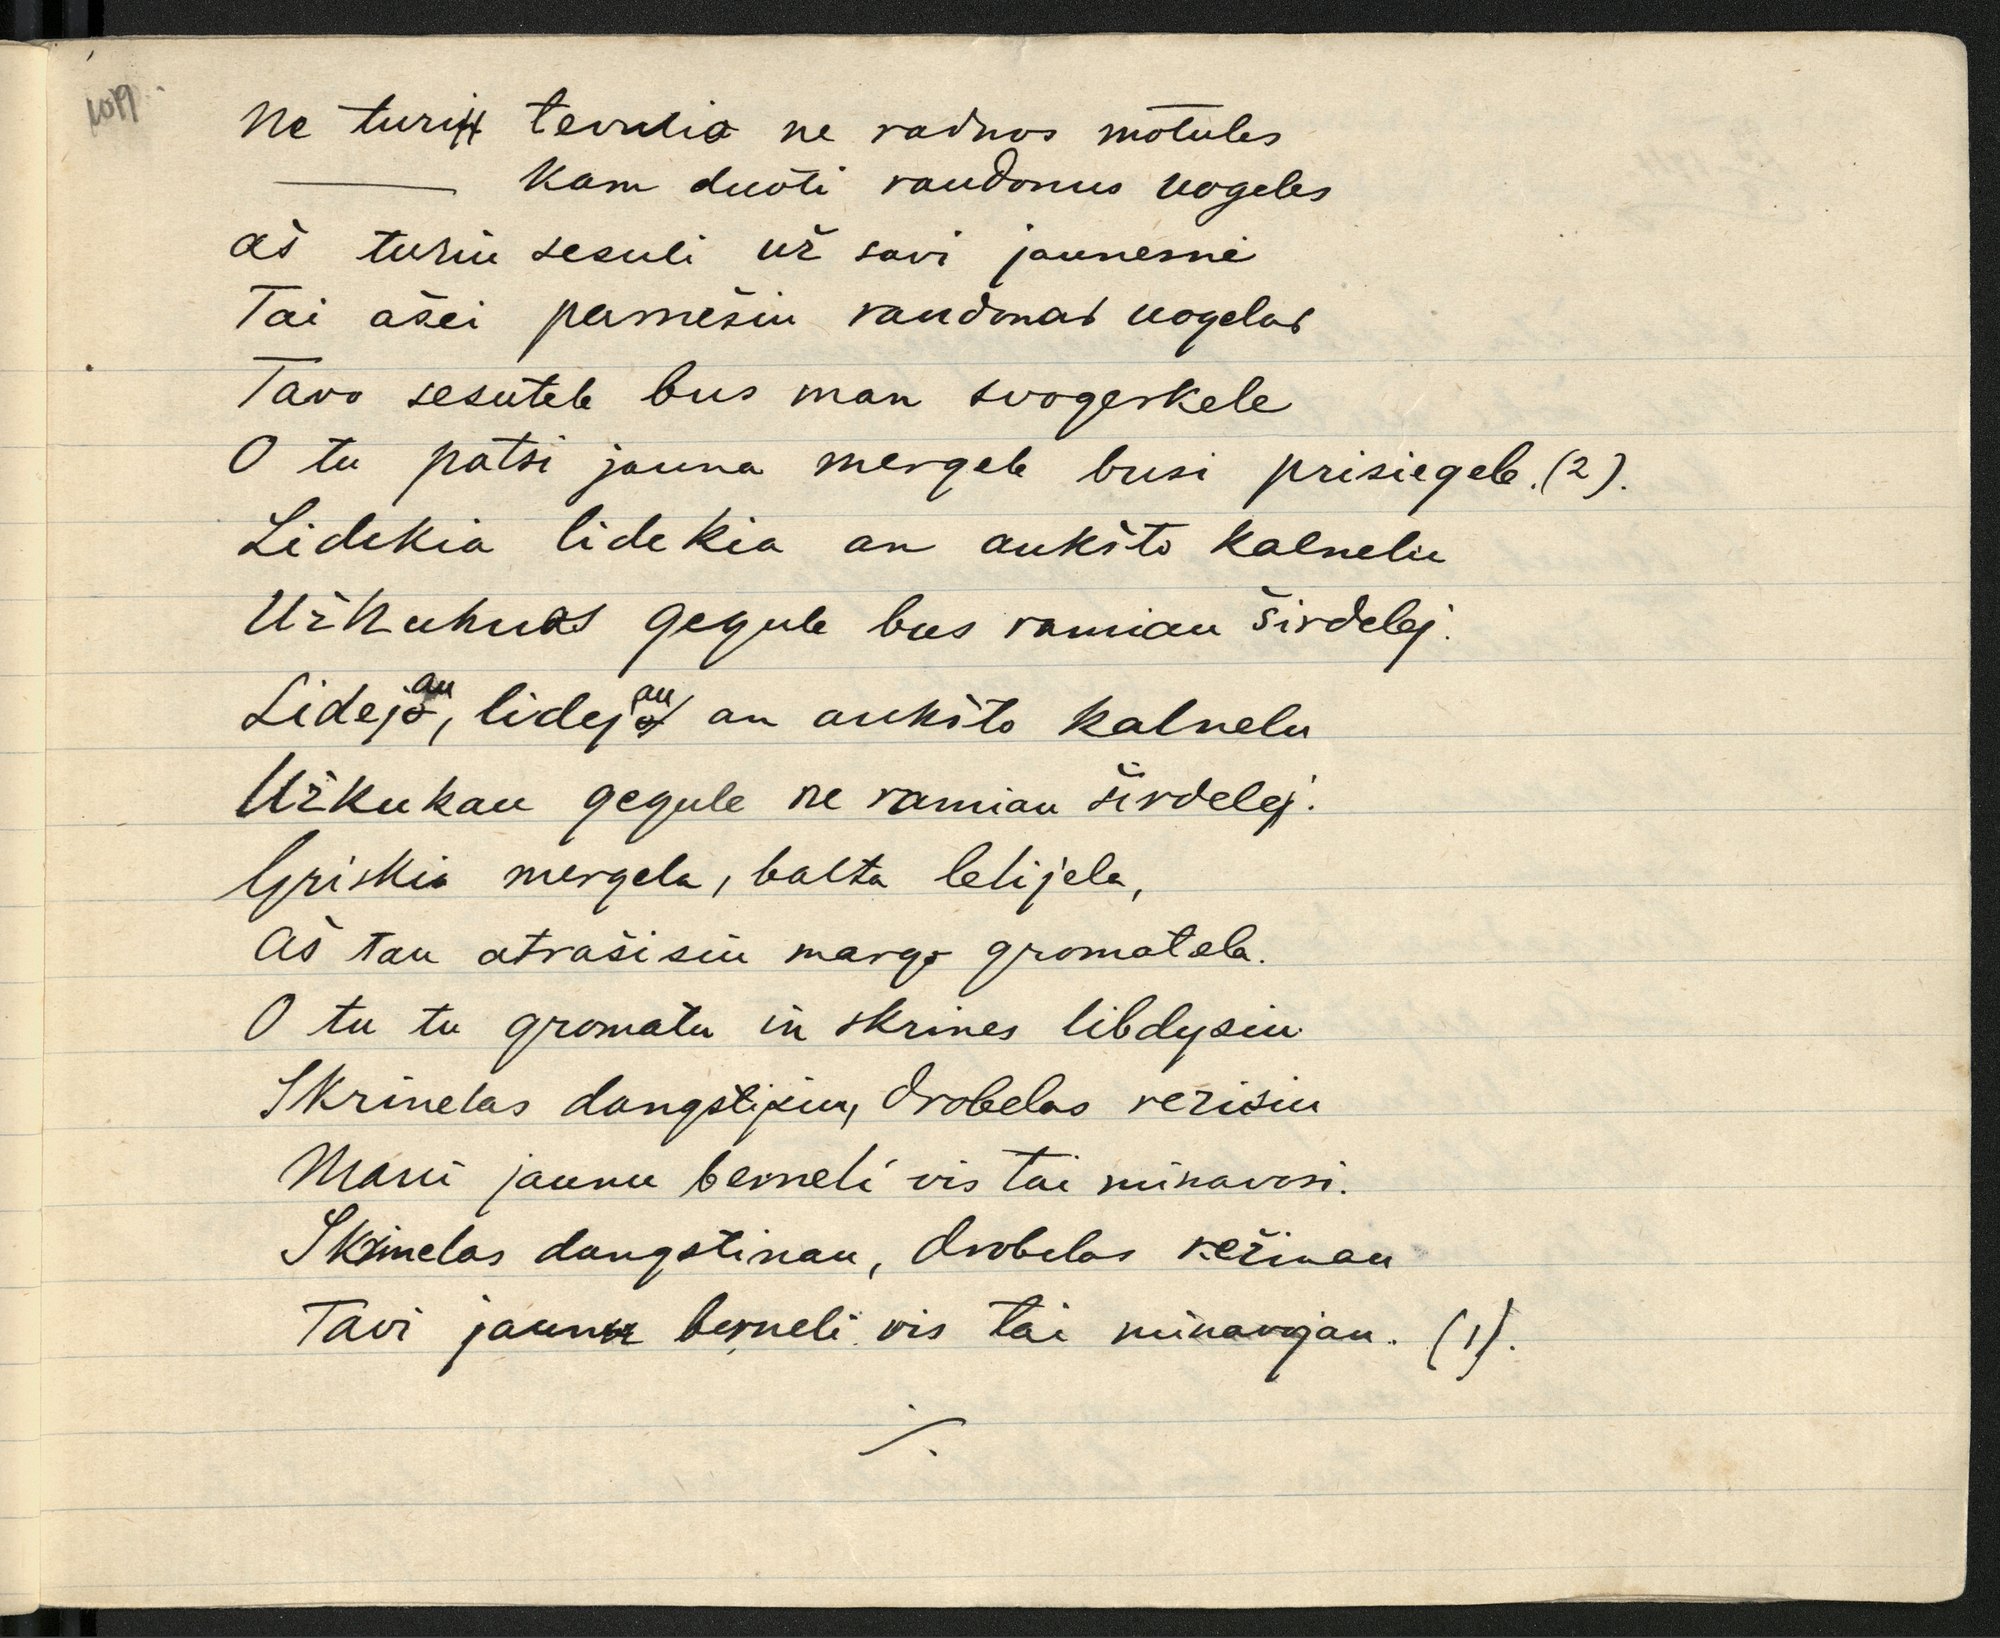 1019
Ne turiu tevulia ne radnos mōtules
Kam duoti raudonus uogeles
aš turiu sesuli už savi jaunesnė
Tai ašei parnešiu raudonas uogelas
Tavo sesutele bus man svogerkele
O tu patsi jauna mergele busi prisiegele. (2).
Lidekia lidekia an aukšto kalneliu
Užkukuos gegule bus ramiau širdelej.
Lidejau, lidejau an aukšto kalnelu
Užkukau gegule ne ramiau širdelej.
Griskia mergela, balta lelijela,
Aš tau atrašisiu margo gromatela.
O tu tu gromatu in skrines libdysiu
Skrinelas dangstijsiu, drobelas rezisiu
Mani jaunu berneli vis tai minavosi.
Skrinelas dangstinau, drobelas režinau
Tavi jaunu berneli vis tai minavojau. (1).